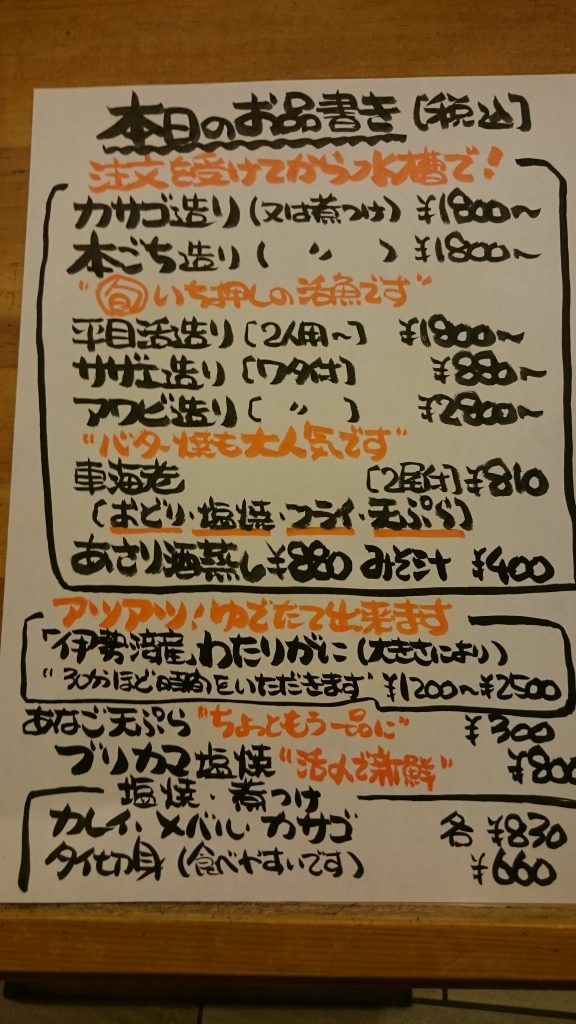 本日のお品書き [税込]
注文を受けてから水槽で!
カサゴ造り(又は煮つけ) ¥1800~
本ごち造り( 〃 ) ¥1800~
"旬いち押しの活魚です"
平目活造り[2人用~] ¥1800~
サザエ造り[ワタ付] ¥880~
アワビ造り[ 〃 ] ¥2800~
"バター焼も大人気です"
車海老 [2尾付]¥810
(おどり・塩焼・フライ・天ぷら)
あさり酒蒸し¥880 みそ汁 ¥400
アツアツ!ゆでたて出来ます
「伊勢湾産」わたりがに(大きさにより)
"30分ほど時間をいただきます" ¥1200~¥2500
あなご天ぷら"ちょっともう一品に" ¥300
ブリカマ塩焼"活〆で新鮮" ¥800
塩焼・煮つけ
カレイ・メバル・カサゴ 各 ¥830
タイ切身(食べやすいです) ¥660